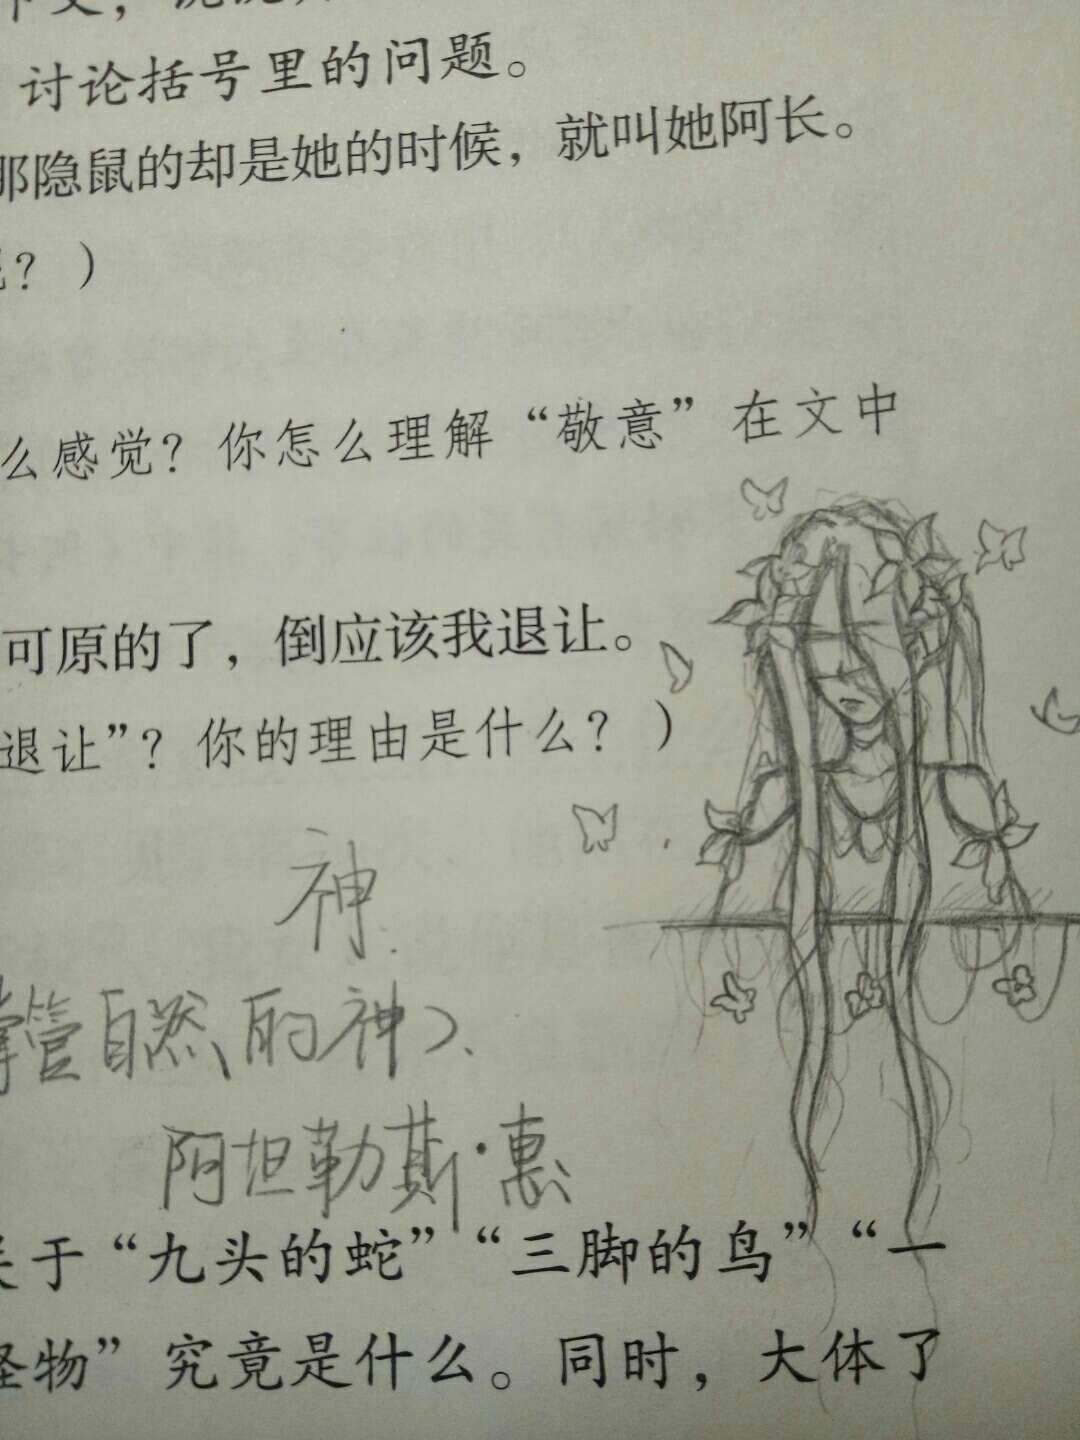 讨论括号里的问题。
那隐鼠的却是她的时候，就叫她阿长。
？）
么感觉？你怎么理解“敬意”在文中
可原的了，倒应该我退让。
退让”？你的理由是什么？）
神
掌管自然的神
阿坦勒斯·惠
关于“九头的蛇”“三脚的鸟”“一
怪物”究竟是什么。同时，大体了